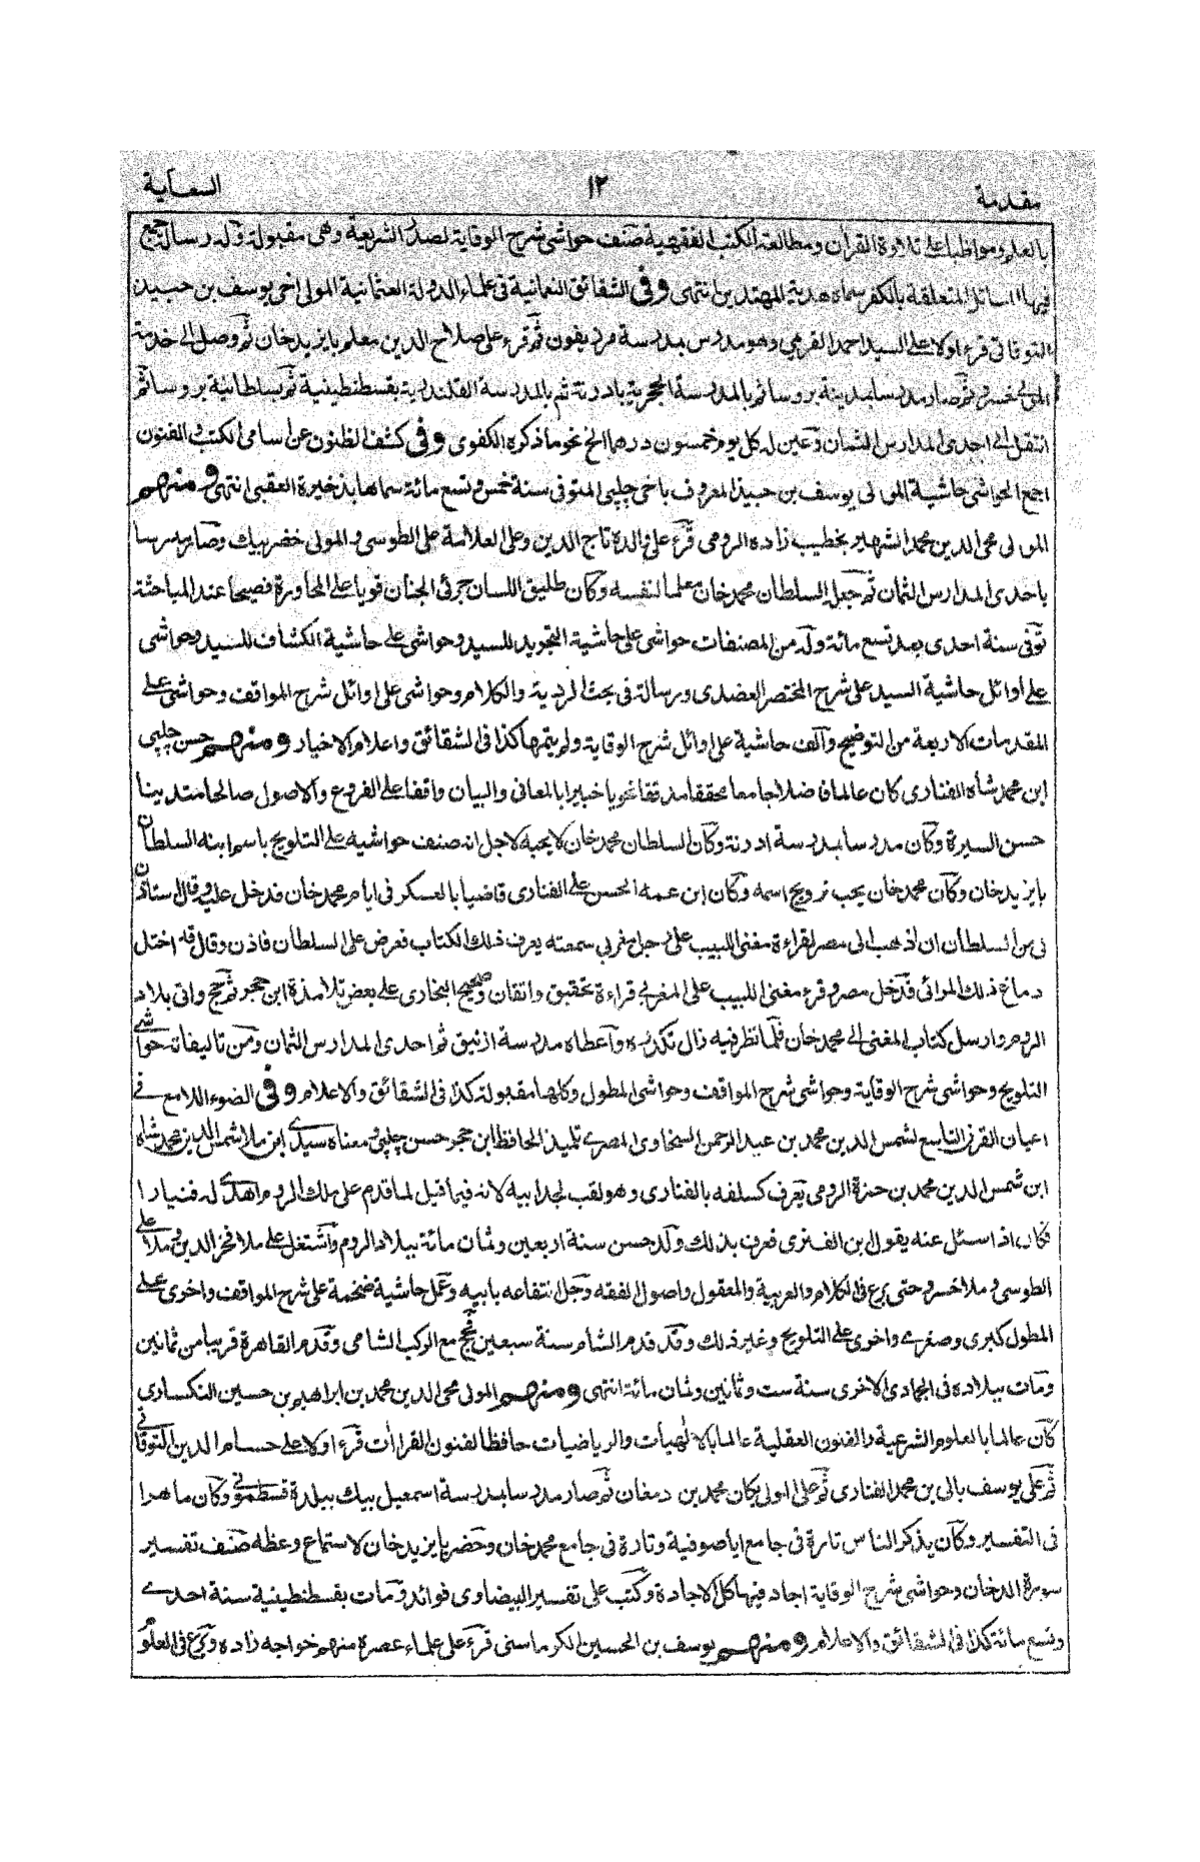 مقدمة
١٢
السعاية
بالعلم ومواظبا على تلاوة القرأن ومطالعة الكتب الفقهية صنف حواشى شرح الوقاية لصدر الشريعة وهى مقبولة وله رسالة جمع
فيها المسائل المتعلقة بالكفر سماه هدية المهتدين انتهى وفى الشقائق النعمانية فى علماء الدولة العثمانية المولى اخى يوسف بن جنيد
التوقانى قرء اولا على السيد احمد القرمى وهو مدرس بمدرسة مرزيفون ثم قرء على صلاح الدين معلم بايزيد خان ثم وصل الى خدمة
المولى خسرو ثم صار مدرسا بمدينة بروسا ثم بالمدرسة الحجرية بادرنة ثم بالمدرسة القلندرية بقسطنطينية ثم بسلطانية بروسا ثم
انتقل الى احدى المدارس الثمان وعين له كل يوم خمسون درهما الخ نحو ما ذكره الكفوى وفى كشف الظنون عن اسامى الكتب والفنون
اجمع الحواشى حاشية المولى يوسف بن جنيد المعروف باخى چلپى المتوفى سنة خمس وتسع مائة سماها بذخيرة العقبى انتهى ومنهم
المولى محى الدين محمد الشهير بخطيب زاده الرومى قرء على والده تاج الدين وعلى العلامة على الطوسى والمولى خضر بيك وصار مدرسا
باحدى المدارس الثمان ثم جعل السلطان محمد خان معلما لنفسه وكان طليق اللسان جرئ الجنان قويا على المحاورة فصيحا عند المباحثة
توفى سنة احدى بعد تسع مائة وله من المصنفات حواشى على حاشية التجويد للسيد وحواشى على حاشية الكشاف للسيد وحواشى
على اوائل حاشية السيد على شرح المختصر العضدى ورسالة فى بحث الردية والكلام وحواشى على اوائل شرح المواقف وحواشى على
المقدمات الاربعة من التوضيح وآلف حاشية على اوائل شرح الوقاية ولم يتمها كذا فى الشقائق واعلام الاخيار ومنهم حسن چلپى
ابن محمد شاه الفنارى كان عالما فاضلا جامعا محققا مدققا نحويا خبيرا بالمعانى والبيان واقفا على الفروع والاصول صالحا متدينا
حسن السيرة وكان مدرسا بمدرسة ادرنة وكان السلطان محمد خان لا يحبه لاجل انه صنف حواشيه على التلويح باسم ابنه السلطان
بايزيد خان وكان محمد خان يحب ترويج اسمه وكان ابن عمه الحسن على الفنارى قاضيا بالعسكر فى ايام محمد خان فدخل عليه وقال استاذن
لى من السلطان ان اذهب الى مصر لقراءة مغنى اللبيب على رجل مغربى سمعته يعرف ذلك الكتاب فعرض على السلطان فاذن وقال قد اختل
دماغ ذلك المرائى فدخل مصر وقرء مغنى اللبيب على المغربى قراءة تحقيق واتقان وصحيح البخارى على بعض تلامذة ابن حجر ثم حج واتى بلاد
الروم وارسل كتاب المغنى الى محمد خان فلما نظر فيه زال تكدره وآعطاه مدرسة ازنيق ثم احدى المدارس الثمان ومن تاليفاته حواشى
التلويح وحواشى شرح الوقاية وحواشى شرح المواقف وحواشى المطول وكلها مقبولة كذا فى الشقائق والاعلام وفى الضوء اللامع فى
اعيان القرن التاسع لشمس الدين محمد بن عبد الرحمن السخاوى المصرى تلميذ الحافظ ابن حجر حسن چلپى ومعناه سيدى ابن ملا شمس الدين محمد شاه
ابن شمس الدين محمد بن حمزة الرومى يعرف كسلفه بالفنارى وهو لقب لجد ابيه لانه فيما قيل لما قدم على ملك الروم اهدى له فنيارا
فكان اذا سئل عنه يقول ابن الفنرى فعرف بذلك ولد حسن سنة اربعين وثمان مائة ببلاد الروم واشتغل على ملا فخر الدين وملا على
الطوسى وملا خسرو حتى برع فى الكلام والعربية والمعقول واصول الفقه وجل انتفاعه بابيه وعمل حاشية ضخمة على شرح المواقف واخرى على
المطول كبرى وصغرى واخرى على التلويح وغير ذلك وقد قدم الشام سنة سبعين فحج مع الركب الشامى وقدم القاهرة قريبا من ثمانين
ومات ببلاده فى الجمادى الاخرى سنة ست وثمانين وثمان مائة انتهى ومنهم المولى محى الدين محمد بن ابراهيم بن حسين النكسارى
كان عالما بالعلوم الشرعية والفنون العقلية عالما بالالٰهيات والرياضيات حافظا لفنون القراأت قرء اولا على حسام الدين التوقانى
ثم على يوسف بالى بن محمد الفنارى ثم على المولى يكان محمد بن دمغان ثم صار مدرسا بمدرسة اسمعيل بيك ببلدة قسطمونى وكان ماهرا
فى التفسير وكان يذكر الناس تارة فى جامع اياصوفية وتارة فى جامع محمد خان وحضر بايزيد خان لاستماع وعظه صنف تفسير
سورة الدخان وحواشى شرح الوقاية اجاد فيها كل الاجادة وكتب على تفسير البيضاوى فوائد ومات بقسطنطينية سنة احدى
وتسع مائة كذا فى الشقائق والاعلام ومنهم يوسف بن الحسين الكرماسنى قرء على علماء عصره منهم خواجه زاده وبرع فى العلوم